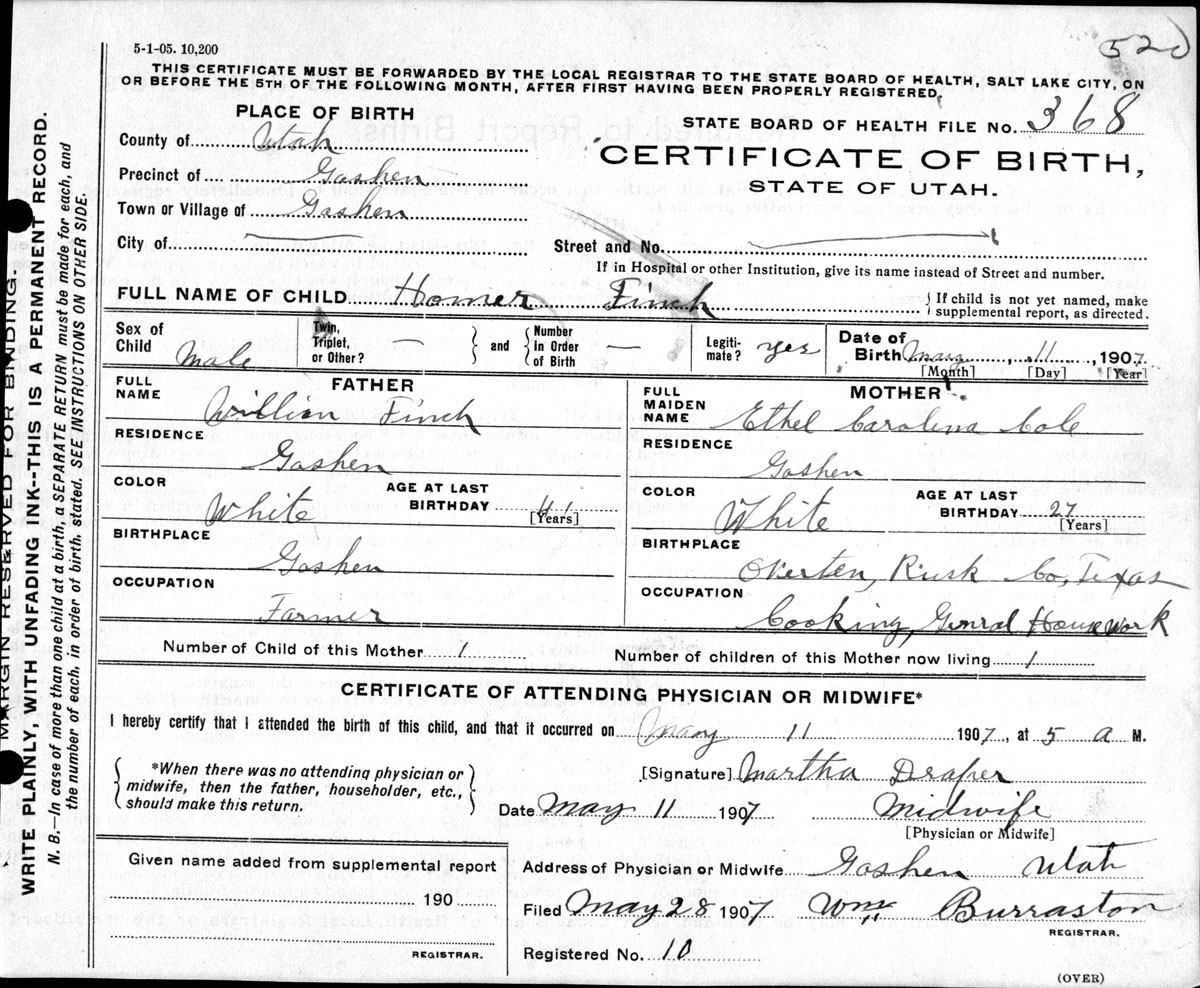 520
5-1-05. 10,200
THIS CERTIFICATE MUST BE FORWARDED BY THE LOCAL REGISTRAR TO THE STATE BOARD OF HEALTH, SALT LAKE CITY, ON
OR BEFORE THE 5TH OF THE FOLLOWING MONTH, AFTER FIRST HAVING BEEN PROPERLY REGISTERED.
PLACE OF BIRTH
STATE BOARD OF HEALTH FILE NO. 368
County of Utah
CERTIFICATE OF BIRTH,
Precinct of Goshen
STATE OF UTAH.
Town or Village of Goshen
City of
Street and No.
If in Hospital or other Institution, give its name instead of Street and number.
FULL NAME OF CHILD Homer Finch
If child is not yet named, make
supplemental report, as directed.
Sex of Child Male
Twin, Triplet, or Other? —
and
Number in Order of Birth —
Legiti-mate? yes
Date of Birth May 11, 1907
[Month] [Day] [Year]
FATHER
FULL NAME William Finch
RESIDENCE
Goshen
COLOR White
AGE AT LAST BIRTHDAY 41
[Years]
BIRTHPLACE
Goshen
OCCUPATION
Farmer
MOTHER
FULL MAIDEN NAME Ethel Carolina Cole
RESIDENCE
Goshen
COLOR White
AGE AT LAST BIRTHDAY 27
[Years]
BIRTHPLACE
Overten, Rusk Co, Texas
OCCUPATION
Cooking, Genral House Work
Number of Child of this Mother 1
Number of children of this Mother now living 1
CERTIFICATE OF ATTENDING PHYSICIAN OR MIDWIFE*
I hereby certify that I attended the birth of this child, and that it occurred on May 11 1907, at 5 A M.
*When there was no attending physician or
midwife, then the father, householder, etc.,
should make this return.
[Signature] Martha Draper
Date May 11 1907
Midwife
[Physician or Midwife]
Given name added from supplemental report
190
REGISTRAR.
Address of Physician or Midwife Goshen Utah
Filed May 28 1907 Wm Burraston
REGISTRAR.
Registered No. 10
(OVER)
MARGIN RESERVED FOR BINDING.
WRITE PLAINLY, WITH UNFADING INK--THIS IS A PERMANENT RECORD.
N. B.—In case of more than one child at a birth, a SEPARATE RETURN must be made for each, and
the number of each, in order of birth, stated. SEE INSTRUCTIONS ON OTHER SIDE.